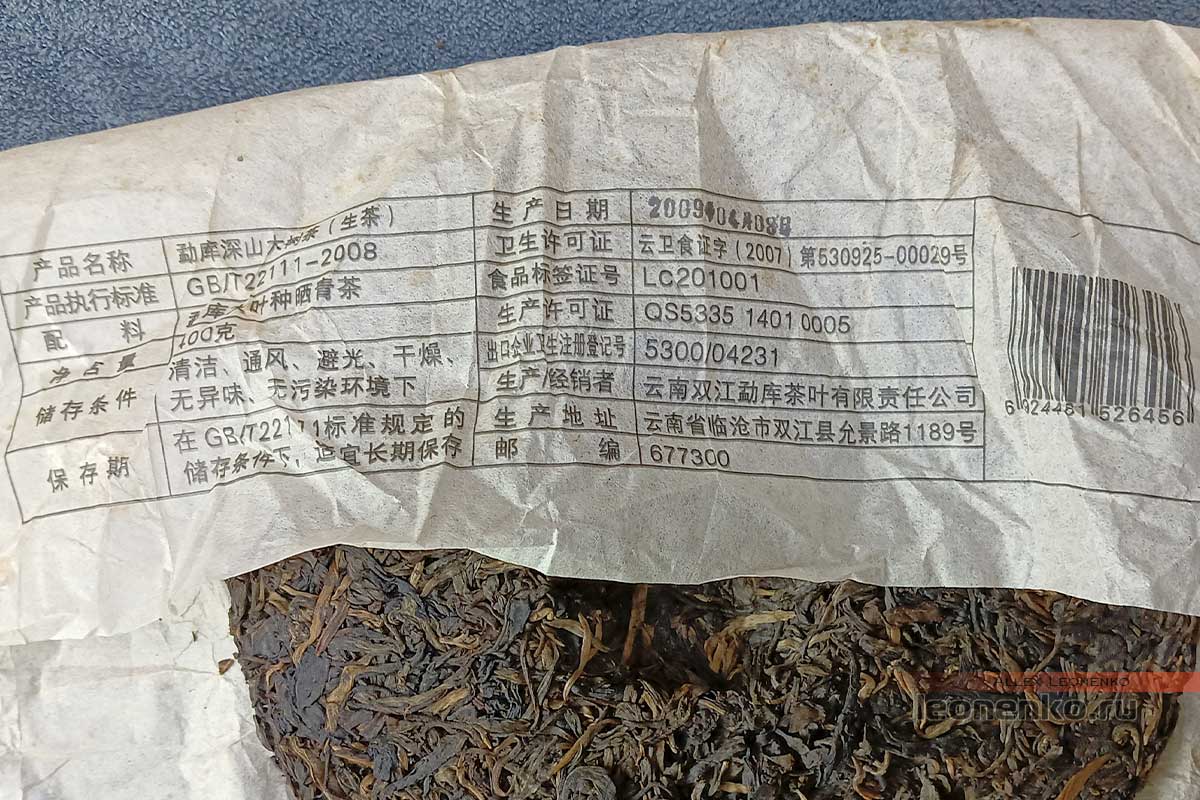 产品名称 勐库深山大树茶（生茶）
产品执行标准 GB/T22111-2008
配 料 勐库大叶种晒青茶
净含量 400克
储存条件 清洁、通风、避光、干燥、
无异味、无污染环境下
保存期 在GB/T22111标准规定的
储存条件下，适宜长期保存
生产日期 2009年04月08日
卫生许可证 云卫食证字（2007）第530925-00029号
食品标签证号 LC201001
生产许可证 QS5335 1401 0005
出口企业卫生注册登记号 5300/04231
生产/经销者 云南双江勐库茶叶有限责任公司
生产地址 云南省临沧市双江县允景路1189号
邮 编 677300
6 924461 526456
ALLEX LEONENKO
leonenko.ru